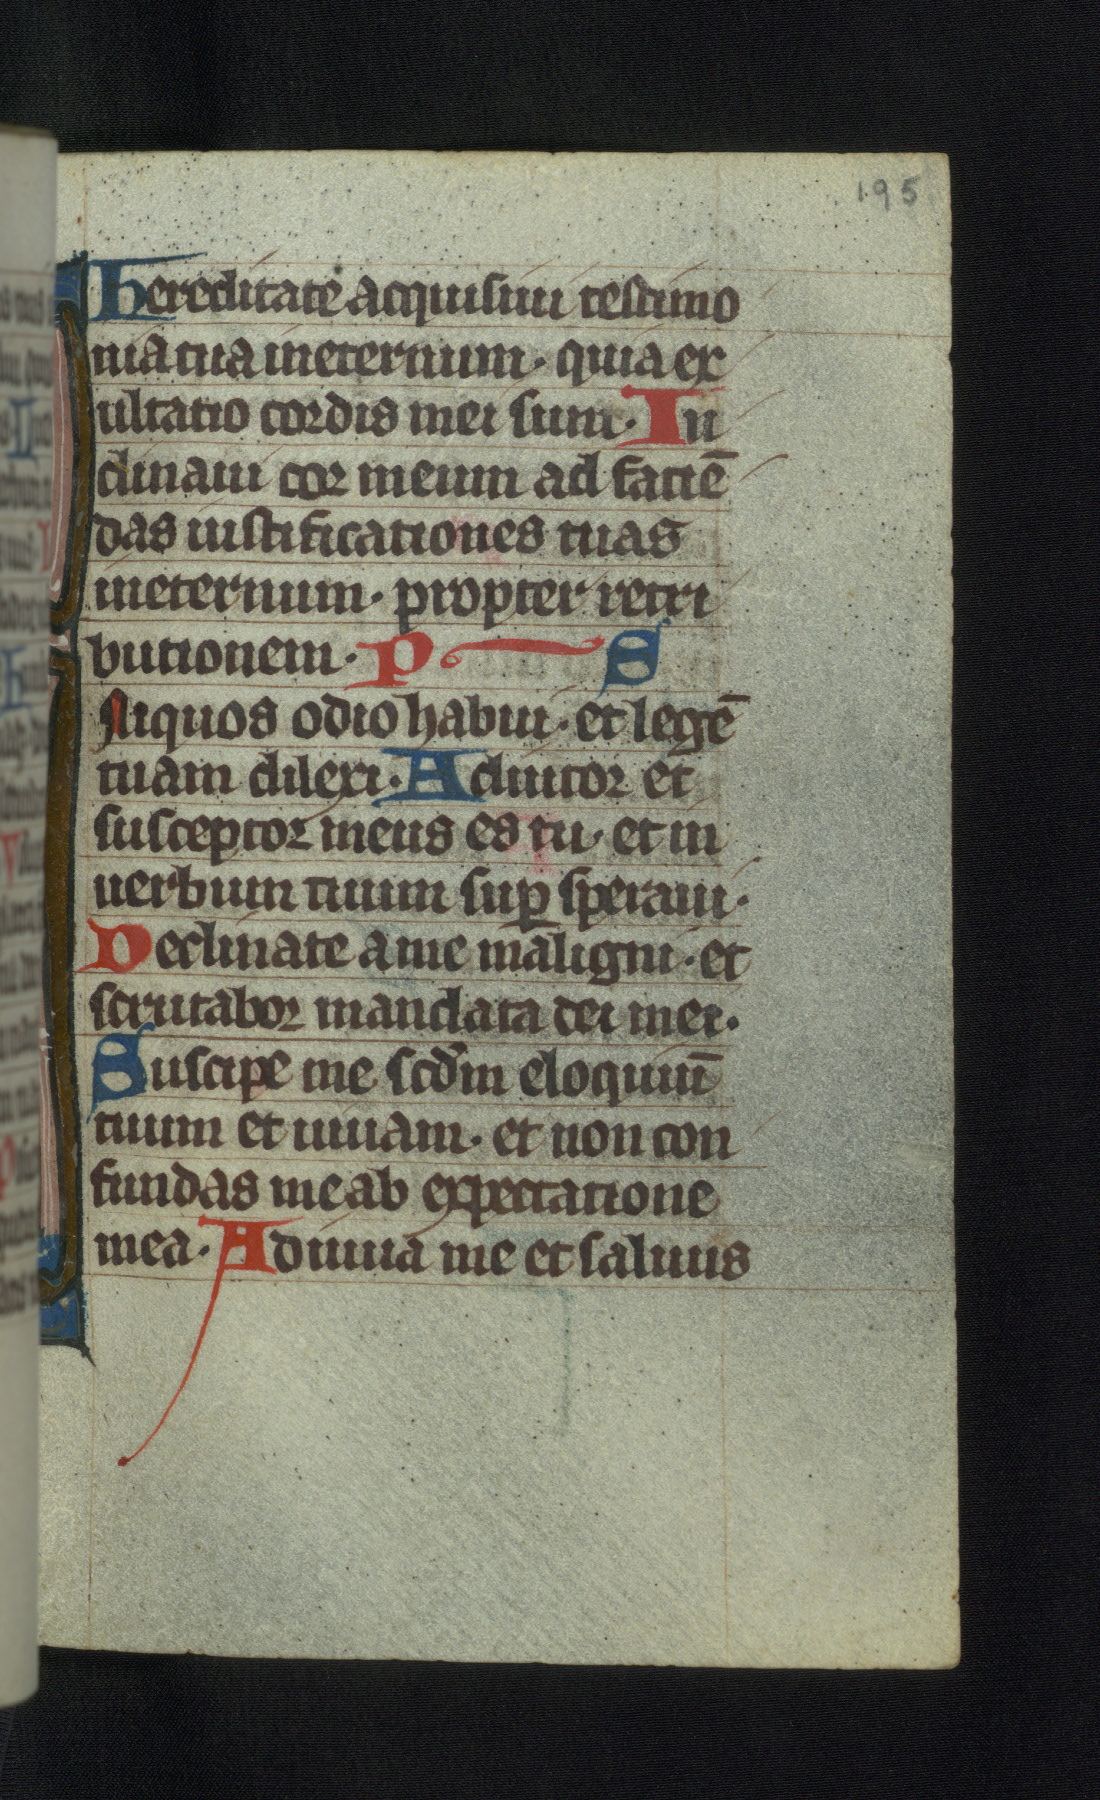 195
Hereditate acquisiui testimo
nia tua ineternum · quia ex
ultatio cordis mei sunt · In
clinaui cor meum ad faciē
das iustificationes tuas
ineternum · propter retri
butionem · P S
niquos odio habui · et legē
tuam dilexi · Adiutor et
susceptor meus es tu · et in
uerbum tuum suꝑ speraui ·
Declinate a me maligni · et
scrutabor mandata dei mei ·
Suscipe me scd̄m eloquiū
tuum et uiuam · et non con
fundas me ab expectatione
mea · Adiuua me et saluus